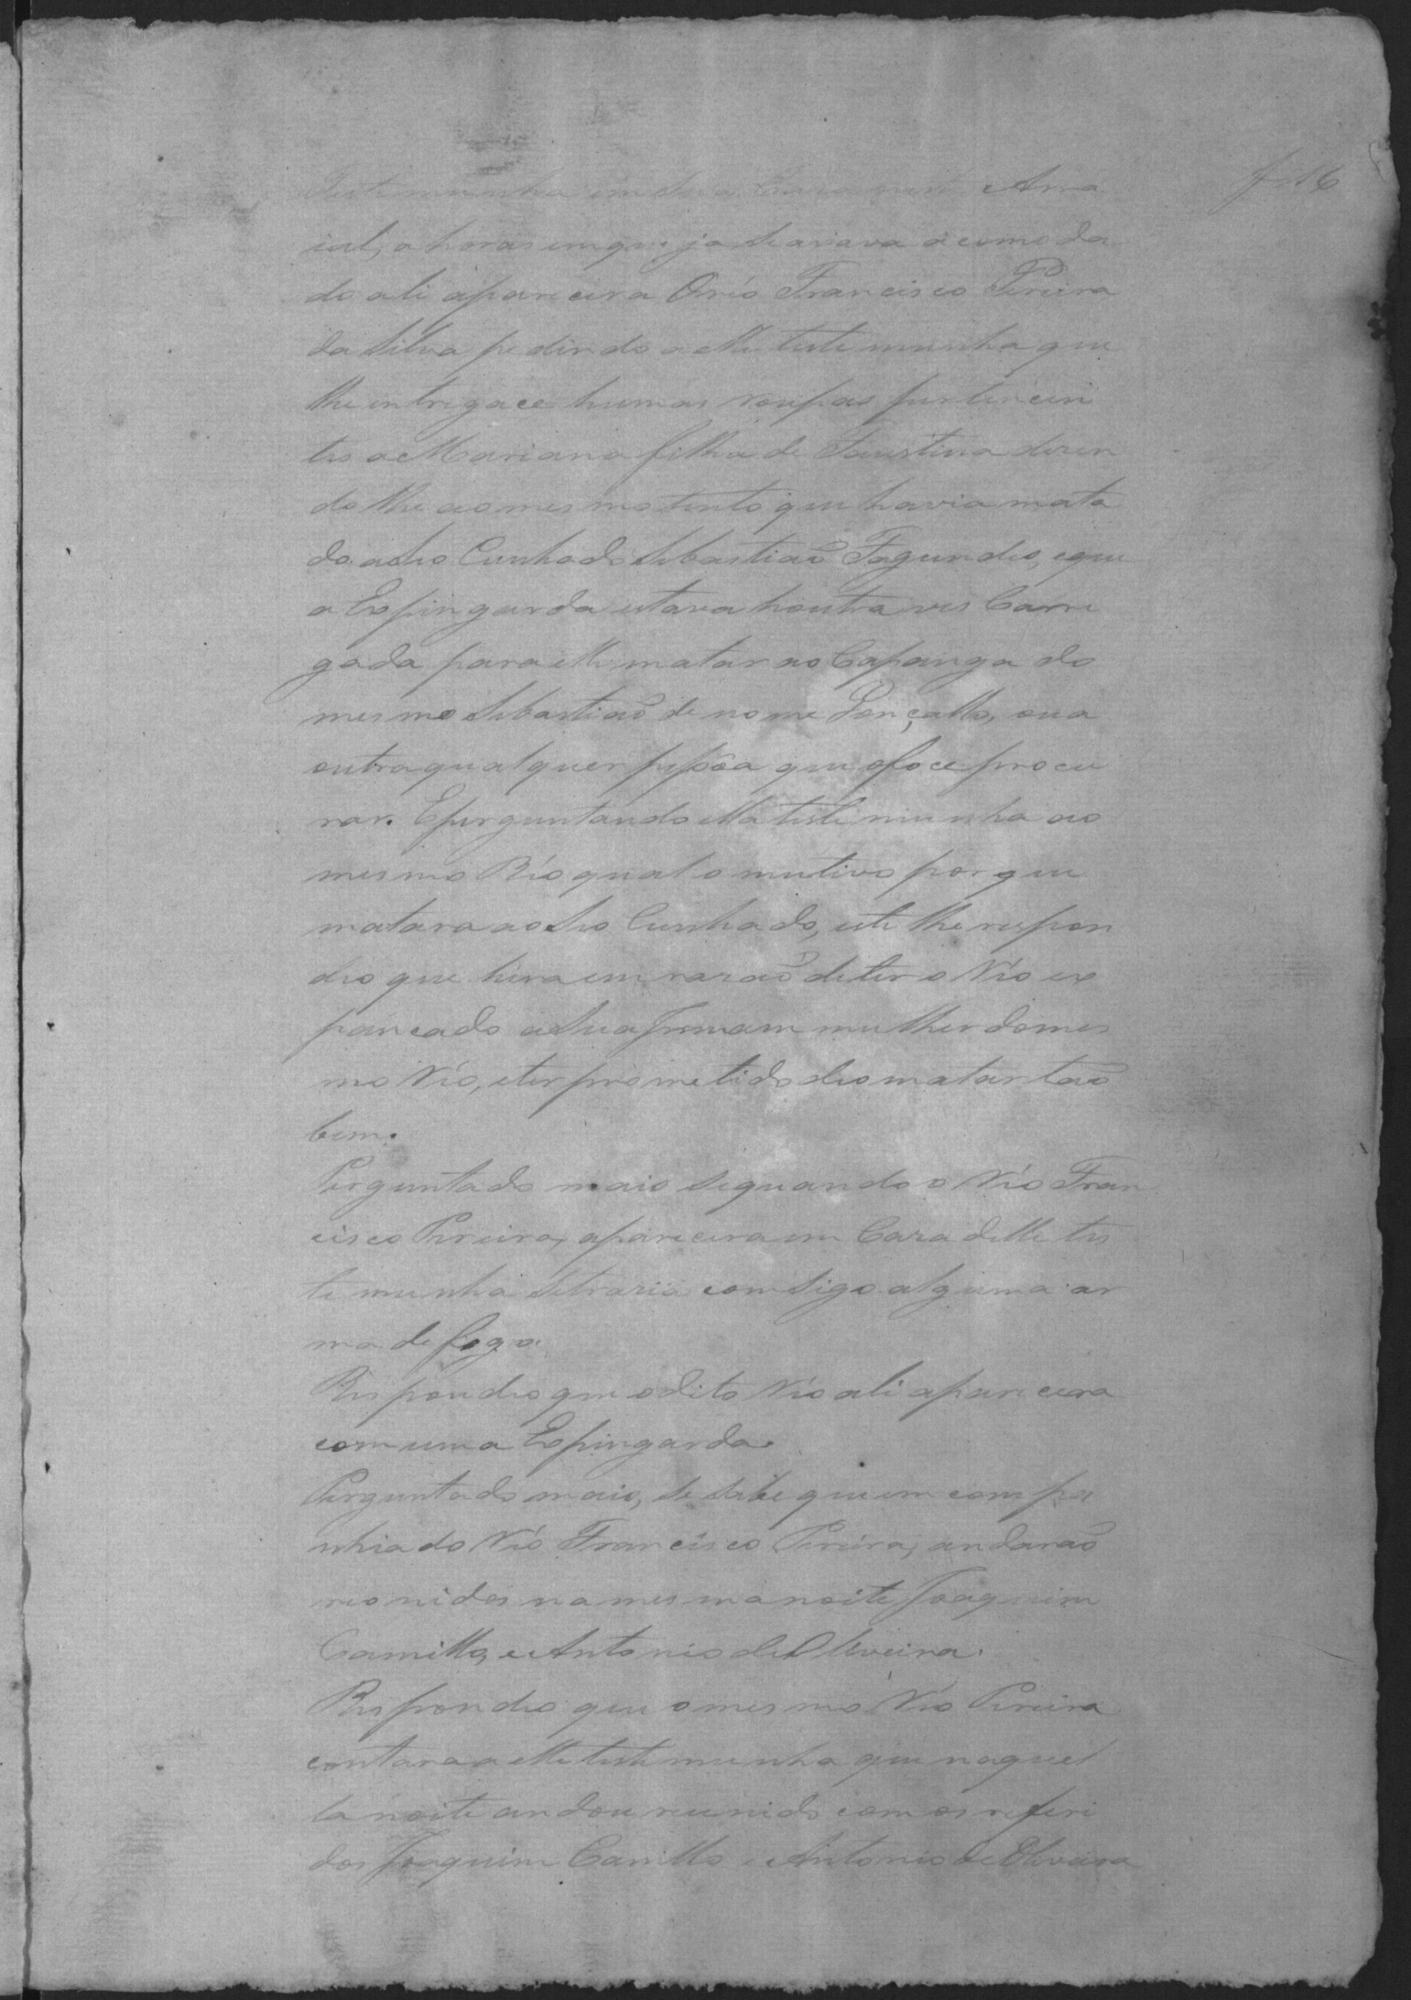 f. 16
Testemunha em sua Caza neste Arra
ial, a horas em que ja se axava acomoda
do ali aparecera O reo Francisco Pereira
da Silva pedindo a elle testemunha que
lhe entregace humas roupas pertencen
tes a Mariana filha de Faustina dizen
do lhe ao mesmo tempo que havia mata
do a seo Cunhado Sebastiaõ Fagundes, e que
a Espingarda estava houtra ves Carre
gada para elle matar ao Capanga do
mesmo Sebastiaõ de nome Gonçallo, ou a
outra qualquer pessoa que o foce procu
rar. E perguntando ella testemunha ao
mesmo Réo qual o mutivo por que
matara ao seo Cunhado, este lhe respon
deo que hera em razaõ de ter o Réo es
pancado a sua Irmam mulher do mes
mo Réo, e ter prometido de o matar taõ
bem.
Perguntado mais se quando o Réo Fran
cisco Pereira, aparecera em Caza delle tes
temunha se trazia comsigo alguma ar
ma de fogo.
Respondeo que o dito Réo ali aparecera
com uma Espingarda.
Perguntado mais, se sabe que em compa
nhia do Réo Francisco Pereira, andaraõ
reonidos na mesma noite Joaquim
Camillo, e Antonio de Oliveira.
Respondeo que o mesmo Réo Pereira
contara a elle testemunha que naquel
la noite andou reunido com os referi
dos Joaquim Camillo e Antonio de Oliveira